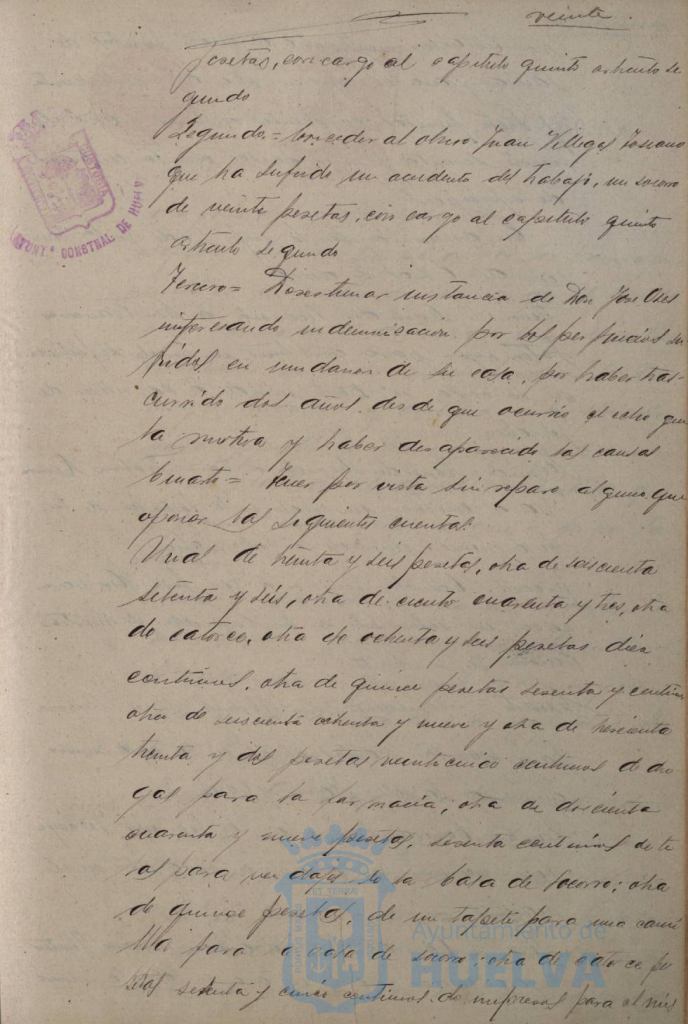 veinte
pesetas, con cargo al capitulo quinto articulo se
gundo
Segundo = Conceder al obrero Juan Villegas Toscano
que ha sufrido un accidente del trabajo, un socorro
de veinte pesetas, con cargo al capitulo quinto
articulo segundo
Tercero = Desestimar instancia de Don Jose
interesando indemnizacion por los perjuicios su
fridos en de su casa, por haber tras-
currido dos años desde que ocurrio el echo que
la motiva y haber desaparecido las causas
Cuarto = Tener por vista sin reparo alguno que
oponer las siguientes cuentas:
Una de treinta y seis pesetas, otra de seiscienta
setenta y seis, otra de ciento cuarenta y tres, otra
de catorce, otra de ochenta y seis pesetas diez
centimos, otra de quince pesetas sesenta y centimos
otra de seiscienta ochenta y nueve y otra de trescienta
treinta y dos pesetas veinticinco centimos de dro
gas para la farmacia; otra de doscienta
cuarenta y nueve pesetas, sesenta centimos de te
las para vendajes de la Casa de Socorro; otra
de quince pesetas, de un tapete para una cami
lla para la casa de socorro; otra de catorce pe
setas setenta y cinco centimos de impresos para el mis
AYUNT.º CONSTNAL DE HUELV
Ayuntamiento de
HUELVA